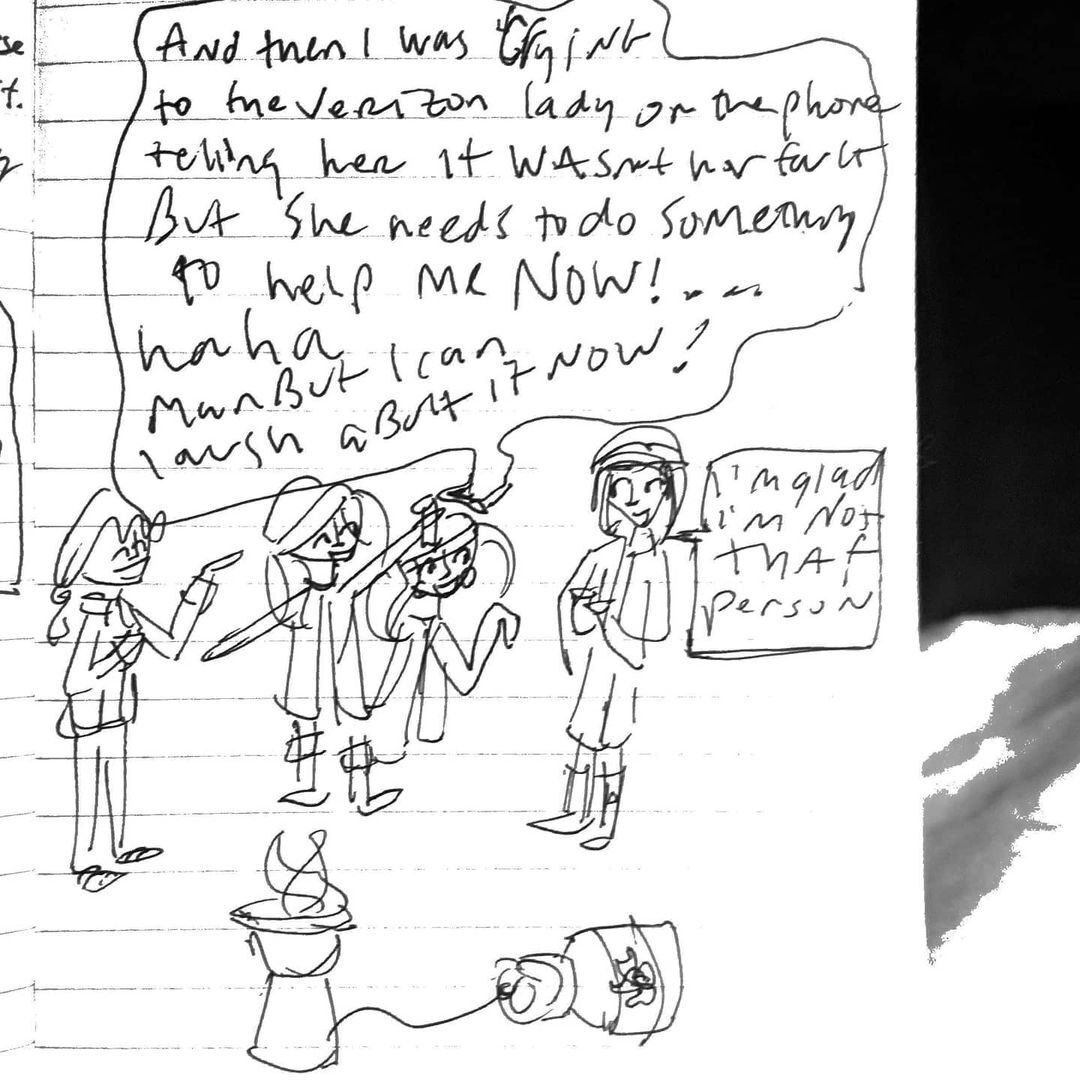 se
it.
And then I was Crying
to the verizon lady on the phone
telling her it WASnt her fault
But she needs to do something
to help me NOW! . - -
haha
man But I can
laugh aBout it NOW!
I'm glad
I'm NOT
THAT
person